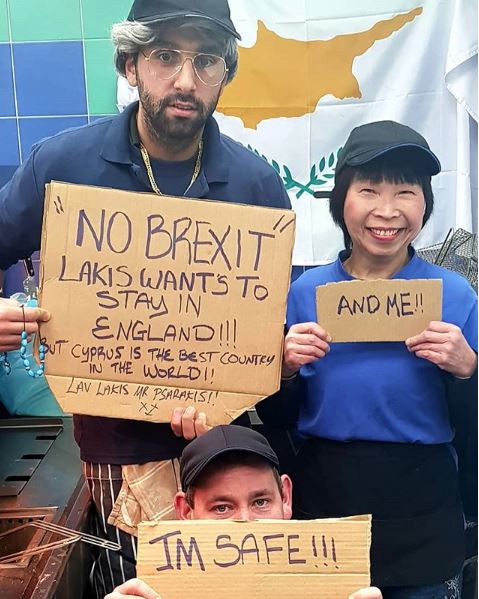 "NO BREXIT"
LAKIS WANT'S TO
STAY IN
ENGLAND!!!
BUT CYPRUS IS THE BEST COUNTRY
IN THE WORLD!!
LAV LAKIS MR PSARAKIS!!
xx
AND ME!!
IM SAFE!!!